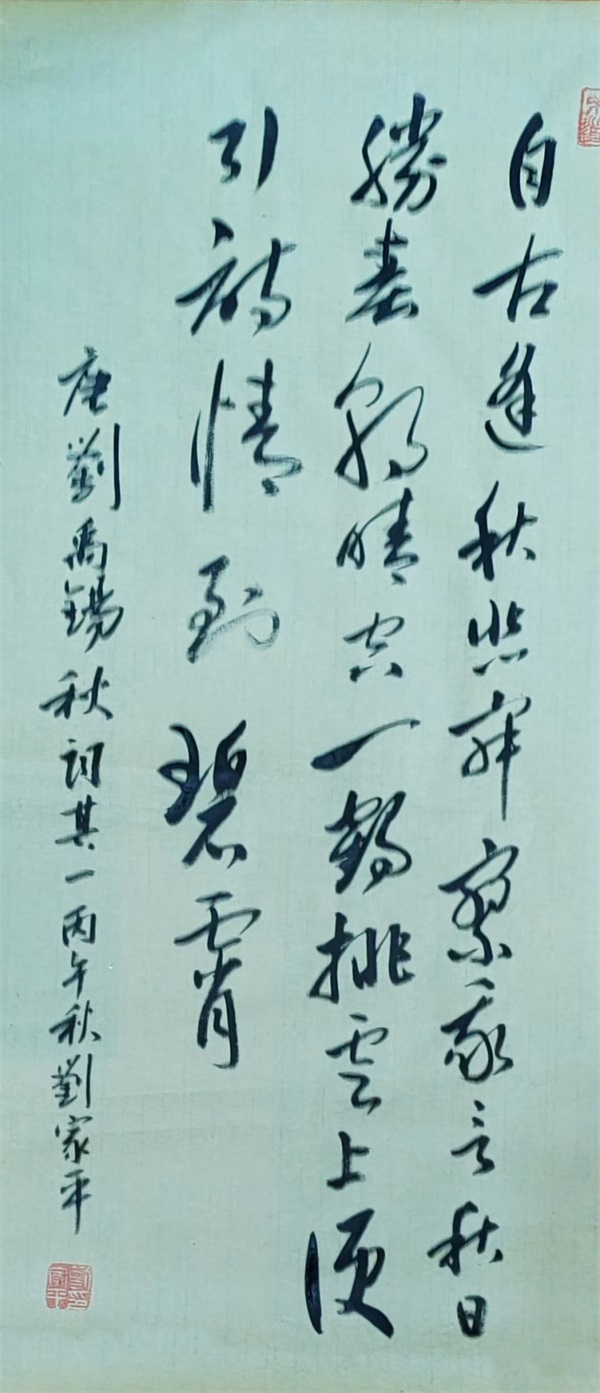 自古逢秋悲寂寥我言秋日
勝春朝晴空一鶴排雲上便
引詩情到碧霄
唐劉禹錫秋詞其一丙午秋劉家平